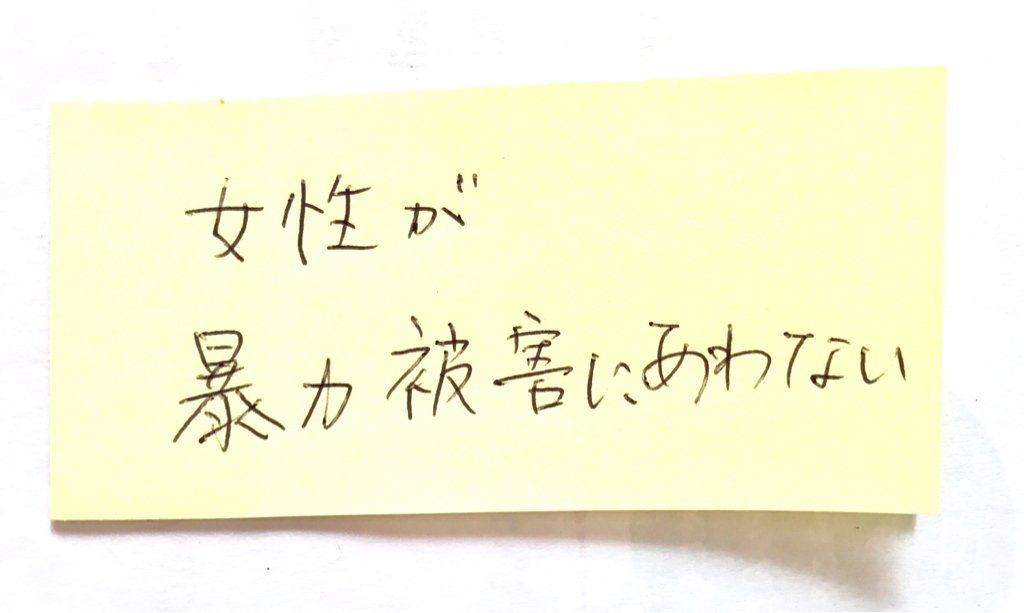 女性が
暴力被害にあわない